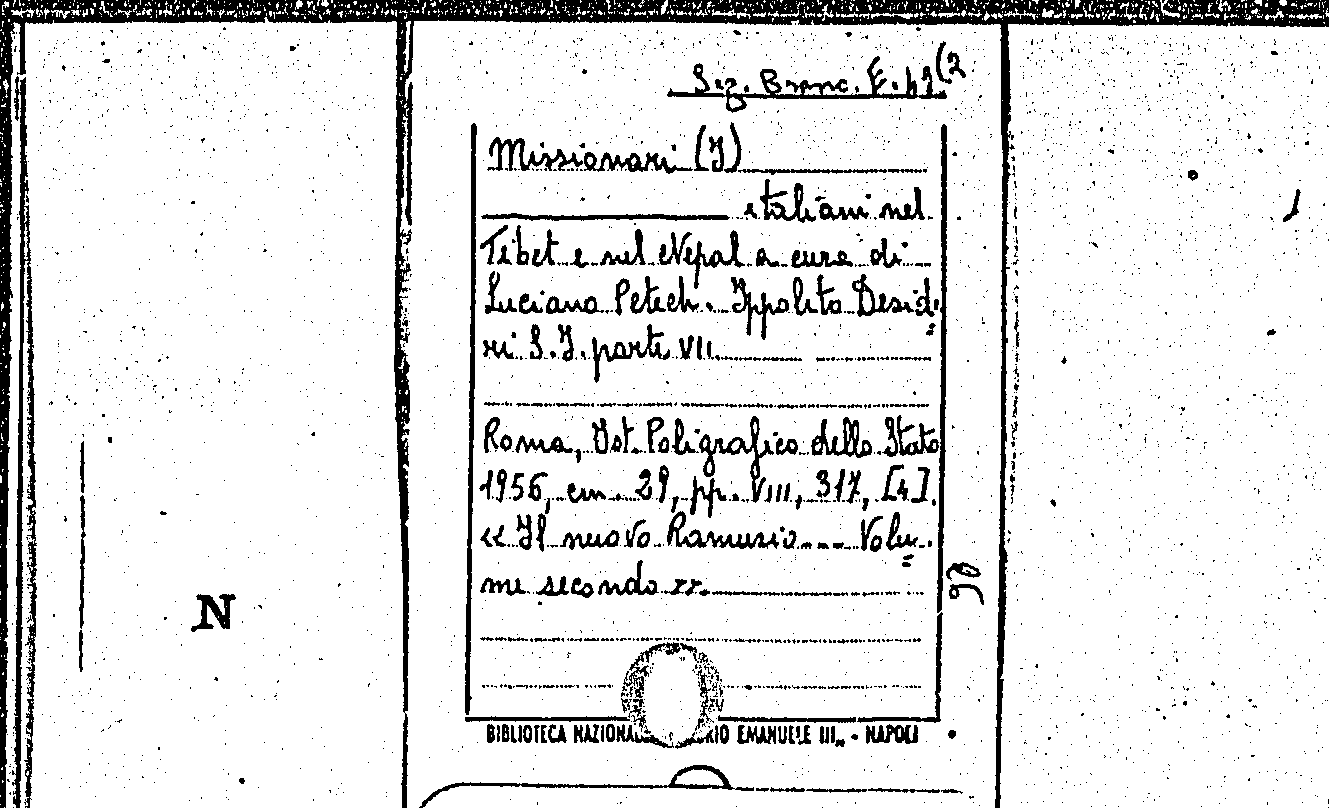 Sez. Branc. F. 49 (2
Missionari (I)
italiani nel
Tibet e nel Nepal a cura di
Luciano Petech. Ippolito Deside
ri S.I. parte VII.
Roma, Ist. Poligrafico dello Stato
1956, cm. 29, pp. VIII, 317, [4].
« Il nuovo Ramusio... Volu=
me secondo ».
N
BIBLIOTECA NAZIONALE EMANUELE III„ - NAPOLI